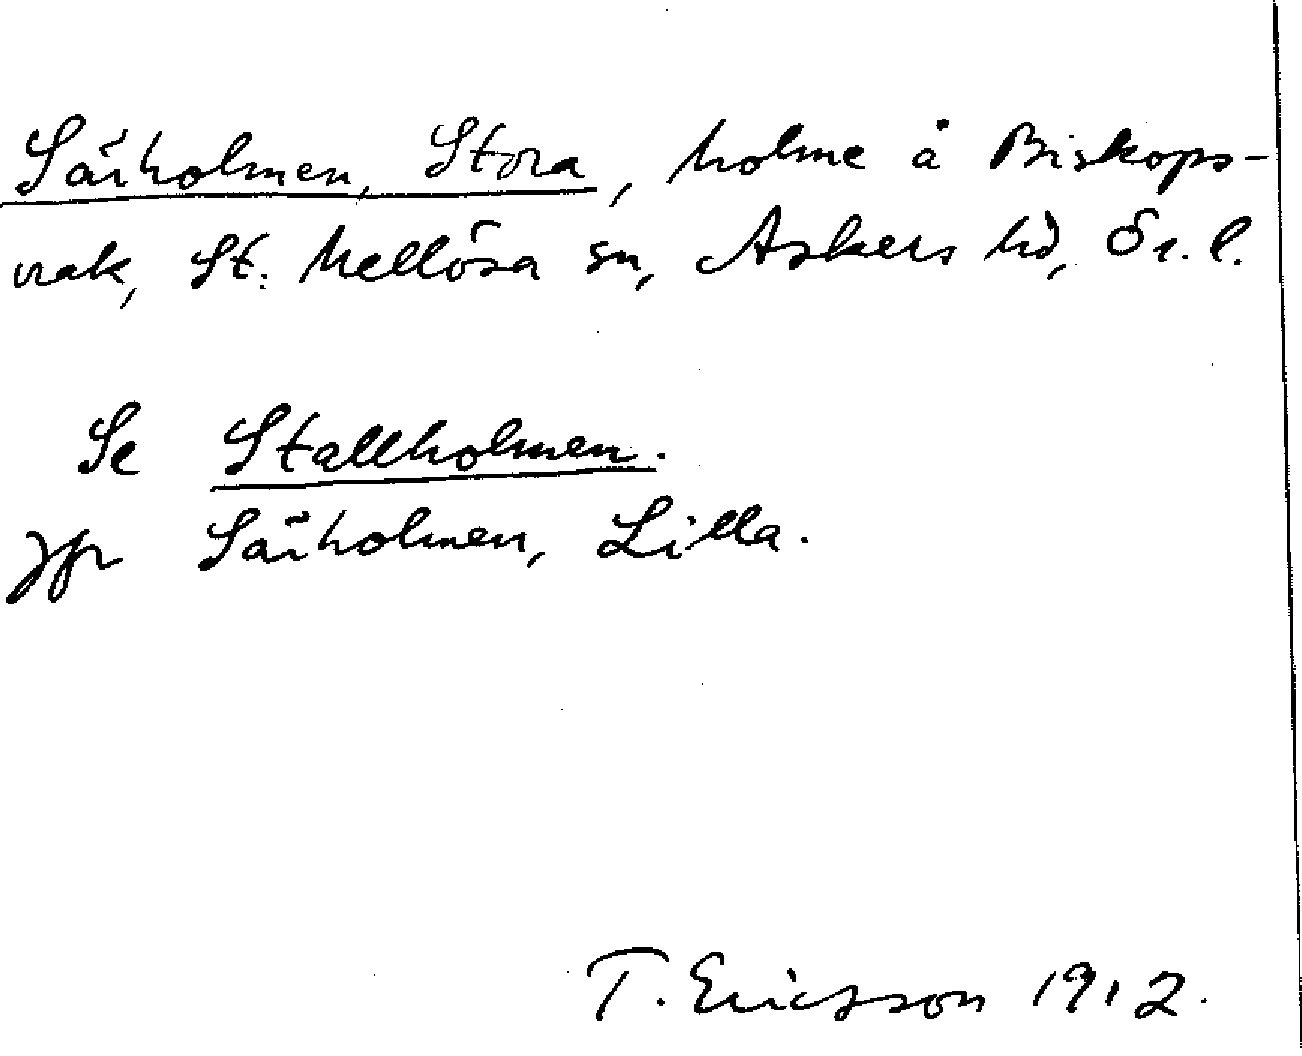 Särholmen, Stora, holme å Biskops-
vrak, St. Mellösa sn, Askers hd, Ör. l.
Se Stallholmen.
Jfr Särholmen, Lilla.
T. Ericsson 1912.